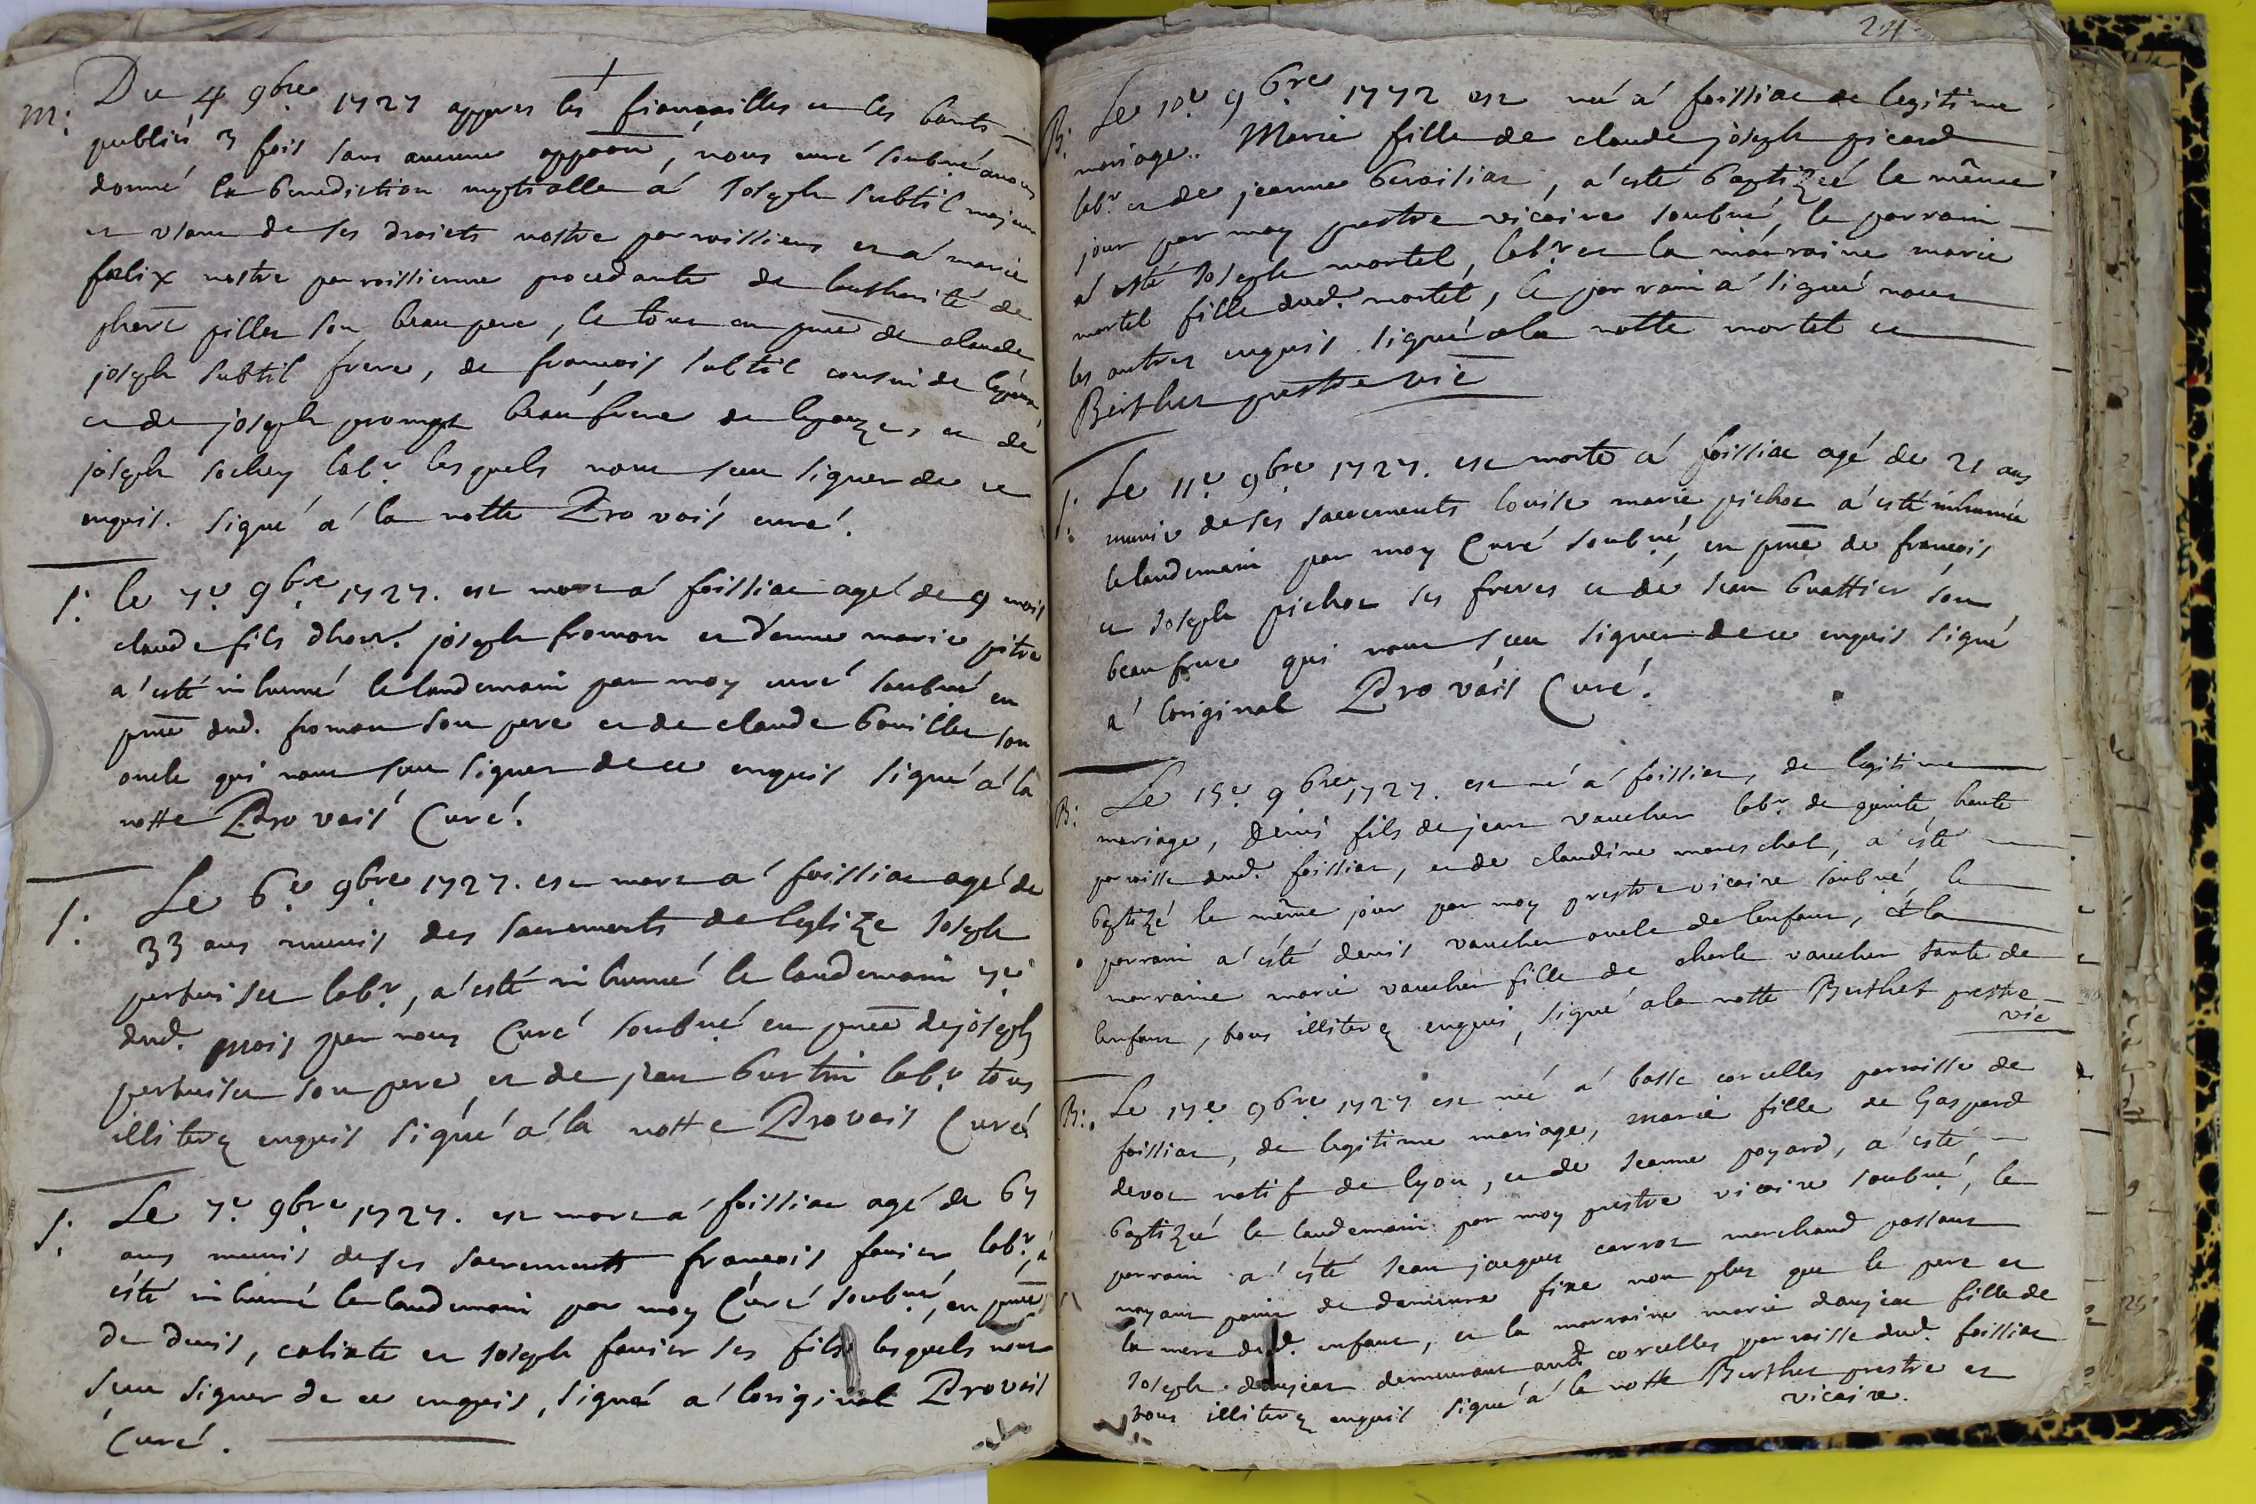 m: Du 4 9bre 1727 appres les fiançailles et les bants
publiés 3 fois sans aucune oppoon, nous curé soubné avons
donné la benediction nuptialle á Joseph subtil majeur
et usant de ses droicts nostre parroissiens et á marie
fœlix nostre parroissienne procedante de lauthorité de
pillet son beau pere, le tout en pnce de claude
joseph subtil frere, de francois subtil cousin de lépoux
et de joseph prompt beaufrere de et de
joseph sochey labr lesquels nont sceu signer de ce
enquis. signé a' la notte Provois curé.
S: le 7e 9bre 1727. est mort á foissiat agé de 9 mois
claude fils joseph fromon et d'enne marie pitre
a' esté inhumé le landemain par moy curé soubné en
pnce dud. fromon son pere et de claude bouillet son
oncle qui nont sceu signer de ce enquis signé a' la
notte Provois Curé.
S: Le 6e 9bre 1727. est mort a' foissiat agé de
33 ans munis des sacrements de leglize Joseph
pertuiset labr, a' esté inhumé le landemain 7e
dud. mois par nous Curé soubné en pnce de joseph
pertuiset son pere et de jean burtin labr tous
illiterez enquis signé a' la notte Provois Curé
S: Le 7e 9bre 1727. est mort a' foissiat agé de 67
ans munis de ses sacrements francois favier labr, a'
esté inhumé le landemain par moy Curé soubné, en pnce
de denis, calixte et Joseph favier ses fils lesquels nont
sceu signer de ce enquis, signé a' loriginal Provois
Curé.
24
B: Le 10e 9bre 1772 est né á foissiat de legitime
mariage.. Marie fille de claude joseph picard
labr et de jeanne, a' esté baptizée le même
jour par moy prestre vicaire soubné, le parrain
a' esté Joseph mortel, labr et la marraine marie
mortel fille dud. mortel, le parrain a' signé non
les autres enquis signé a la notte mortel et
Berthet prestre vic
S: Le 11e 9bre 1727. est morte a' foissiat agé de 21 ans
munie de ses sacrements louise marie pichot a' esté inhumée
le landemain par moy Curé soubné, en pnce de francois
et Joseph pichot ses freres et de Jean buattier son
beaufrere qui nont sceu signer de ce enquis signé
a' loriginal Provois Curé.
B: Le 15e 9bre 1727. est né a' foissiat, de legitime
mariage, denis fils de jean vaucher labr de haute
parroisse dud. foissiat, et de claudine mareschal, a' esté
baptizé le même jour par moy prestre vicaire soubné, le
parrain a' esté denis vaucher oncle de lenfant, et la
marraine marie vaucher fille de charle vaucher tante de
lenfant, tous illiterez enquis, signé a la notte Berthet prestre
vic
B: Le 17e 9bre 1727 est né a' basse corcelles parroisse de
foissiat, de legitime mariage, marie fille de Gaspard
devot natif de lyon, et de Jeanne poyard, a' esté
baptizée le landemain par moy prestre vicaire soubné, le
parrain a' esté Jean jacques carrot marchand passant
nayant point de demeure fixe non plus que le pere et
la mere dud. enfant, et la marraine marie danjean fille de
Joseph danjean demeurant aud. corcelles parroisse dud. foissiat
tous illiterez enquis signé a' la notte Berthet prestre et
vicaire.